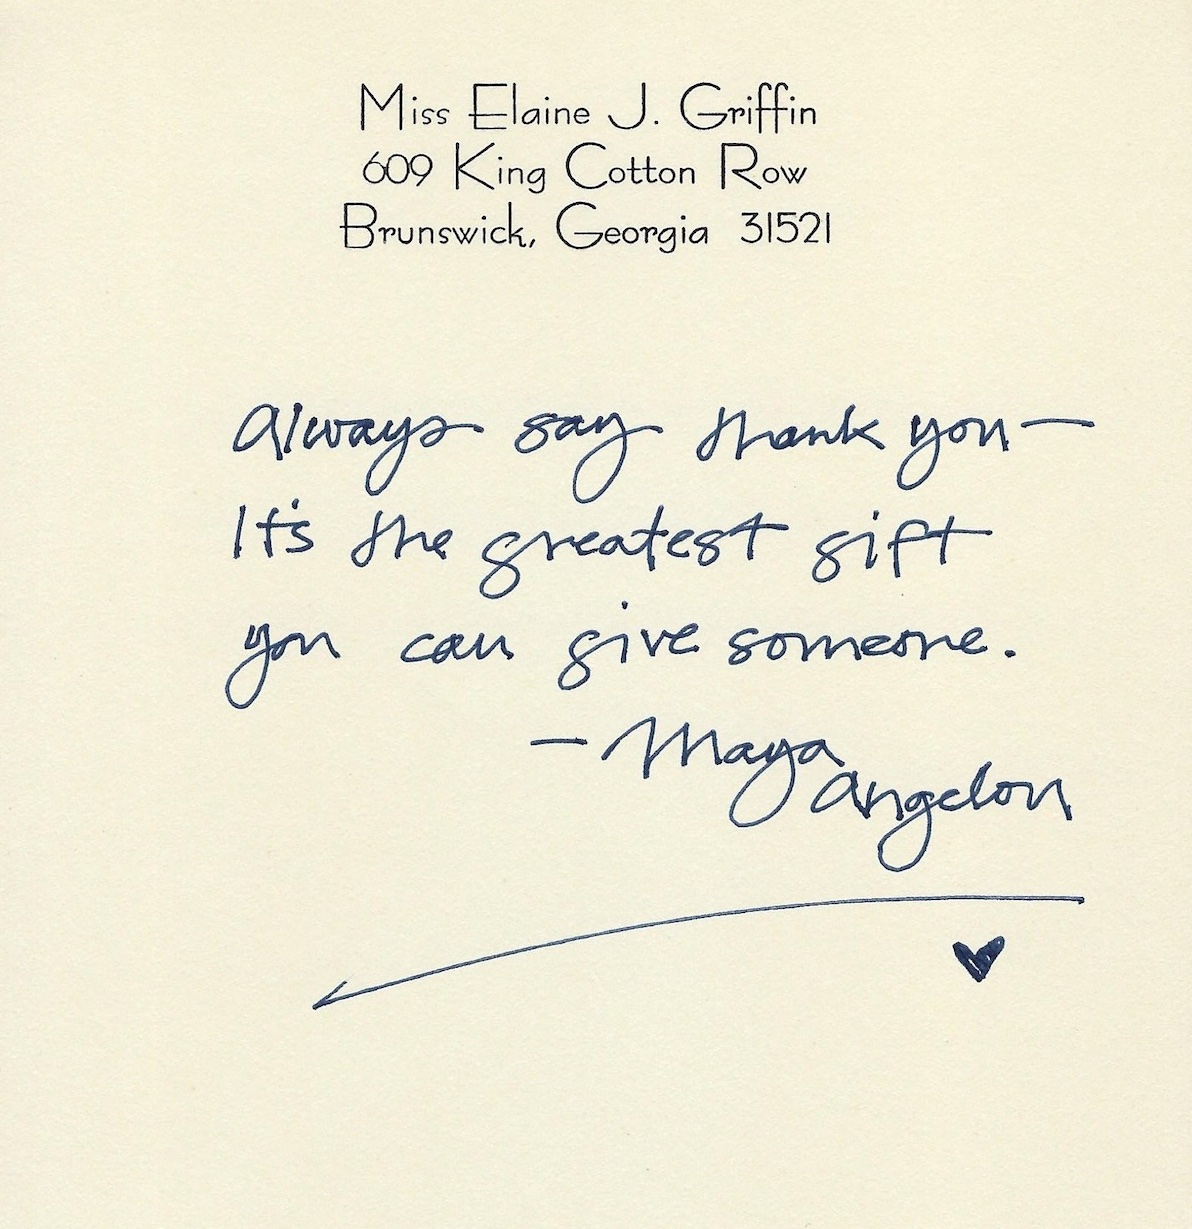 Miss Elaine J. Griffin
609 King Cotton Row
Brunswick, Georgia 31521
Always say thank you—
It's the greatest gift
you can give someone.
— Maya
Angelou